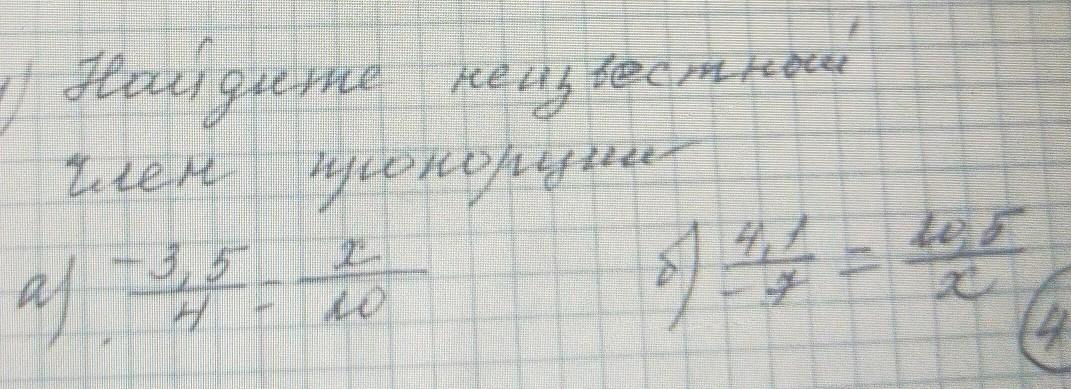 1) Найдите неизвестный
член пропорции
а) -3,5/4 = x/10 б) 4,1/-7 = 10,5/x
4